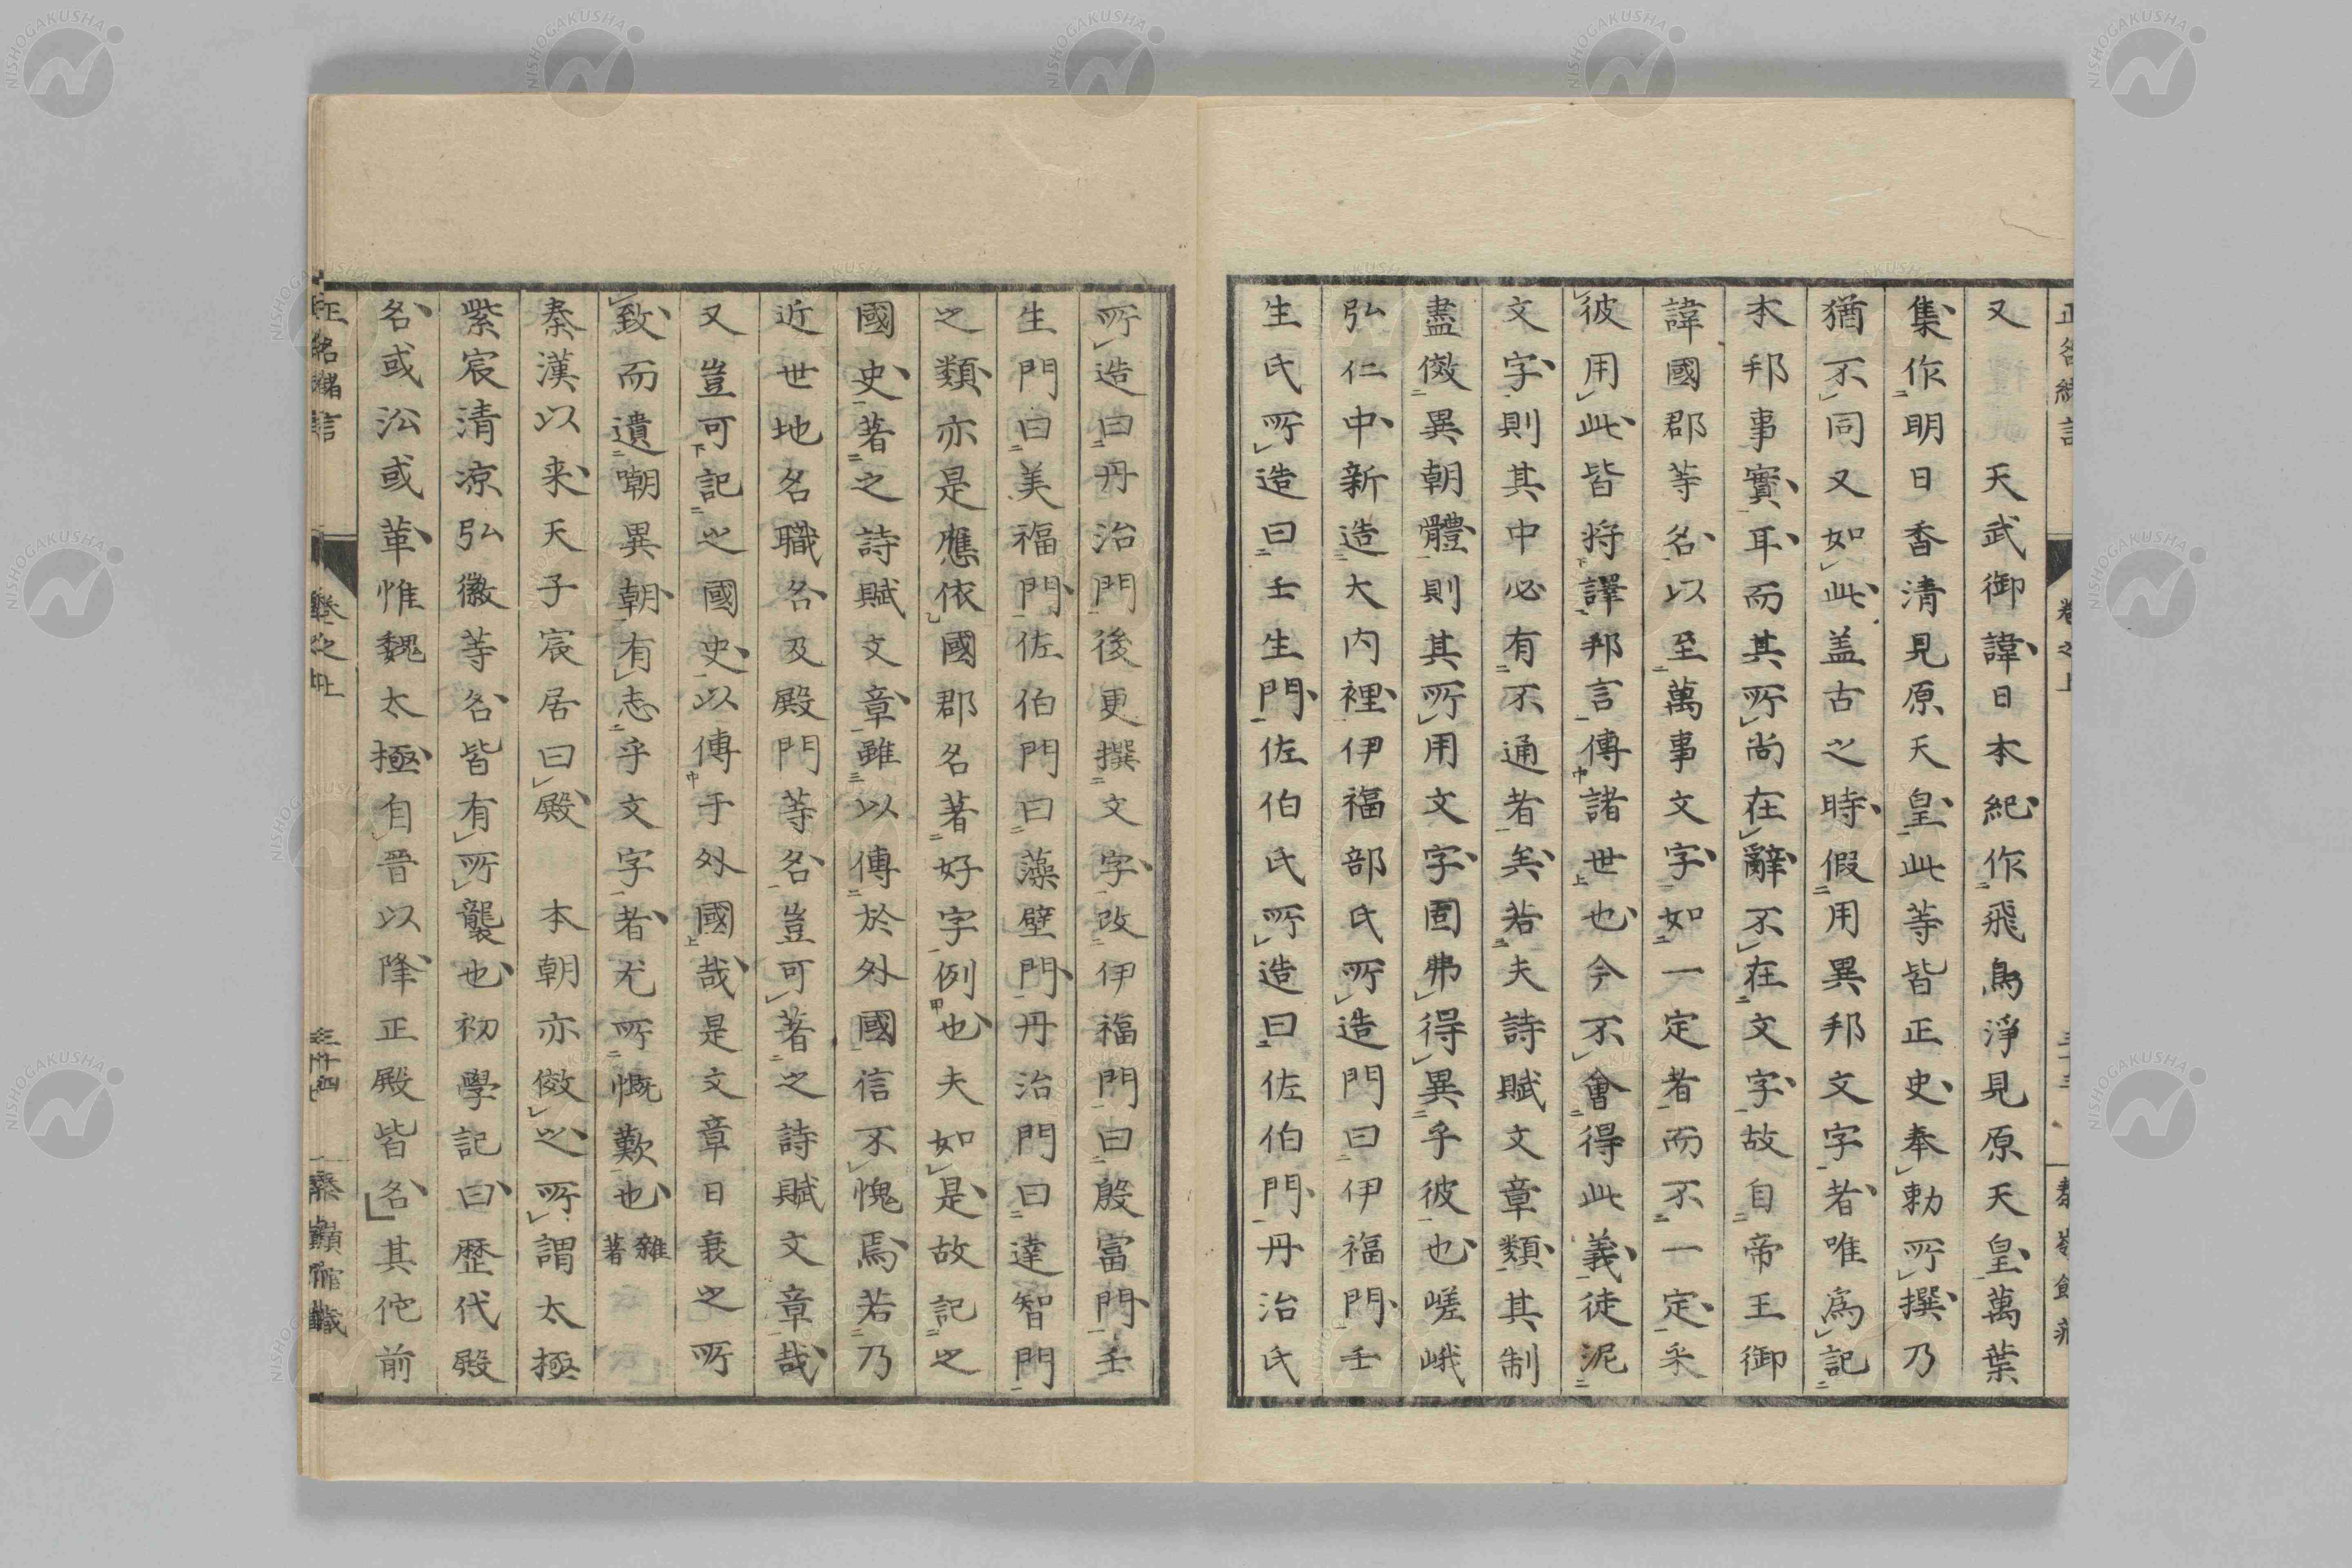 又　　天武御諱日本紀作飛鳥淨見原天皇萬葉
集作明日香清見原天皇此等皆正史奉勅所撰乃
猶不同又如此盖古之時假用異邦文字者唯爲記
本邦事實耳而其所尚在辭不在文字故自帝王御
諱國郡等名以至萬事文字如一定者而不一定釆
彼用此皆將譯邦言傳諸世也今不會得此義徒泥
文字則其中必有不通者矣若夫詩賦文章類其制
盡倣異朝體則其所用文字固弗得異乎彼也嵯峨
弘仁中新造大内裡伊福部氏所造門曰伊福門壬
生氏所造曰壬生門佐伯氏所造曰佐伯門丹治氏
所造曰丹治門後更撰文字改伊福門曰殷富門壬
生門曰美福門佐伯門曰藻壁門丹治門曰達智門
之類亦是應依國郡名著好字例也夫如是故記之
國史著之詩賦文章雖以傳於外國信不愧焉若乃
近世地名職名及殿門等名豈可著之詩賦文章哉
又豈可記之國史以傳于外國哉是文章日衰之所
致而遺嘲異朝有志乎文字者尤所慨歎也雜著
秦漢以来天子宸居曰殿　本朝亦倣之所謂太極
紫宸清凉弘徽等名皆有所襲也初學記曰歴代殿
名或沿或革惟魏太極自晉以降正殿皆名其佗前
正名緒言　卷之上　三十四